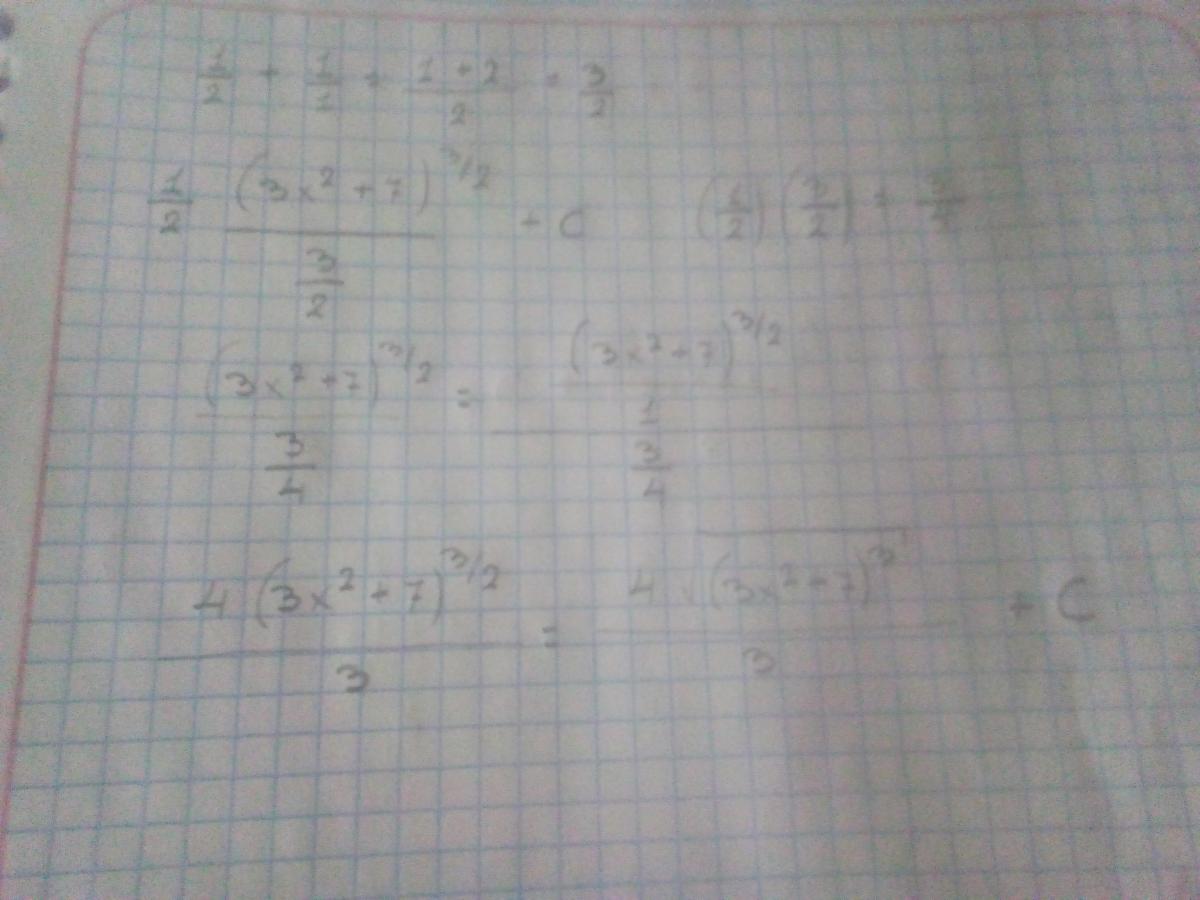 1/2 + 1/1 = 1+2/2 = 3/2
1/2 (3x² + 7)^3/2 / 3/2 + C (1/2)(3/2) = 3/4
(3x² + 7)^3/2 / 3/4 = (3x² + 7)^3/2 / 1 / 3/4
4 (3x² + 7)^3/2 / 3 = 4 √(3x² + 7)³ / 3 + C